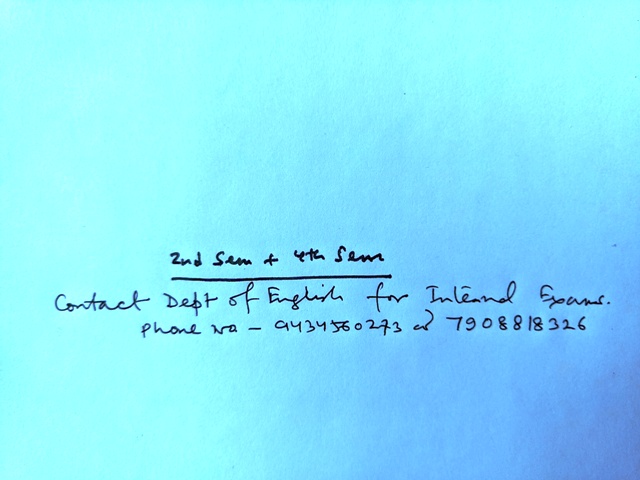 2nd Sem + 4th Sem
Contact Dept of English for Internal Exams.
Phone no - 9434560273 or 7908818326